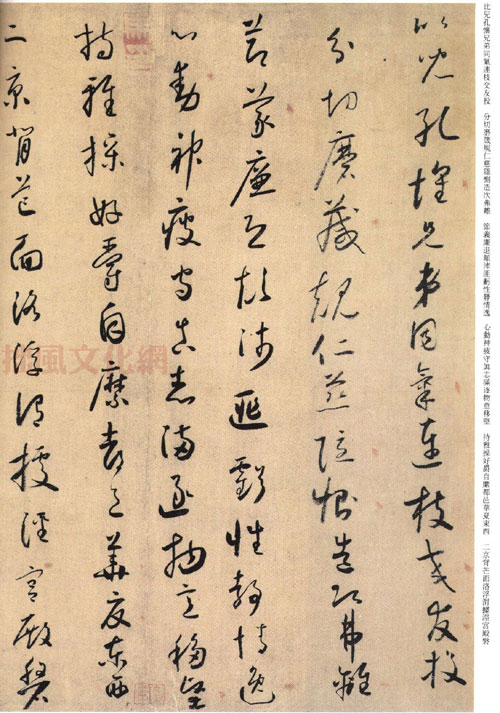 比兒孔懷兄弟同氣連枝交友投 分切磨箴規仁慈隱惻造次弗離 節義廉退顛沛匪虧性靜情逸 心動神疲守真志滿逐物意移堅 持雅操好爵自縻都邑華夏東西 二京背芒面洛浮渭據涇宮殿磐
比兒孔懷兄弟同氣連枝交友投
分切磨箴規仁慈隱惻造次弗離
節義廉退顛沛匪虧性靜情逸
心動神疲守真志滿逐物意移堅
持雅操好爵自縻都邑華夏東西
二京背芒面洛浮渭據涇宮殿磐
風文化網